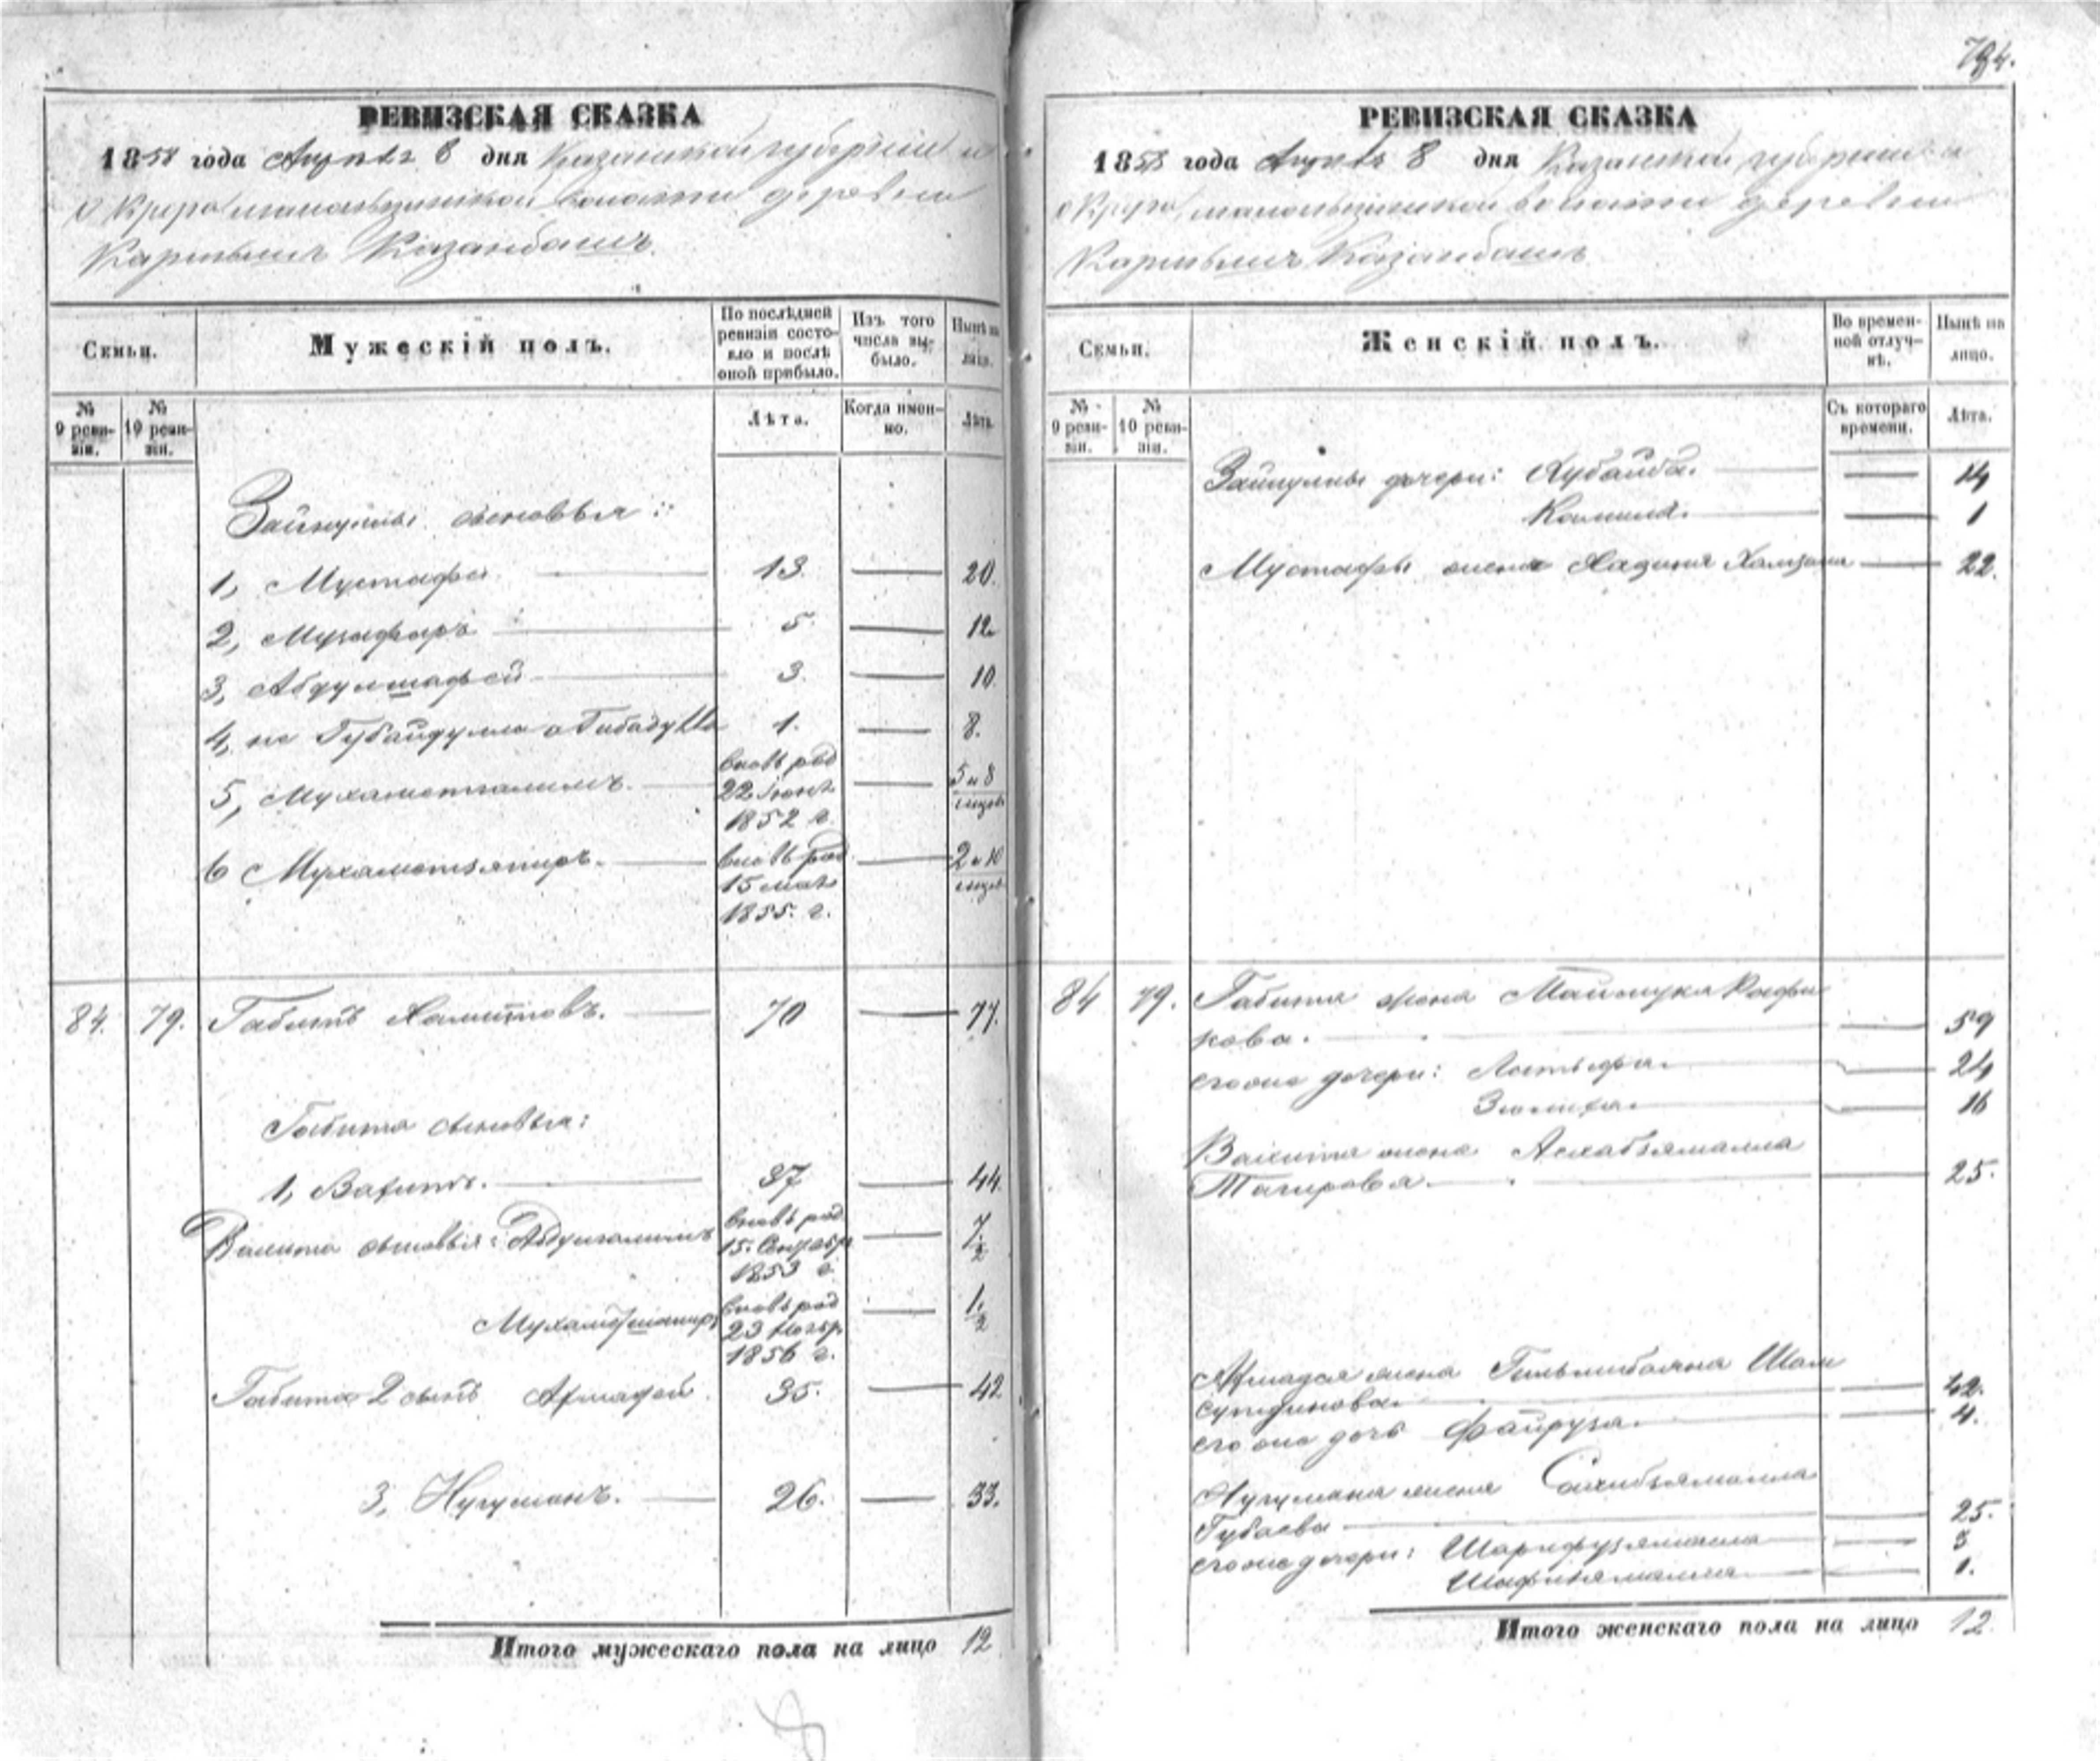 РЕВИЗСКАЯ СКАЗКА
1858 года Августа 8 дня Казанской губерніи и
волости деревни
Казанбашъ.
Семьи.
Мужескій полъ.
По послѣдней ревизіи состояло и послѣ оной прибыло.
Изъ того числа выбыло.
Нынѣ на лицо.
№ 9 ревизіи.
№ 10 ревизіи.
Лѣта.
Когда именно.
Лѣта.
Зайнуллы сыновья:
1, Мустафа 13. 20.
2, Музафаръ 5. 12.
3, Абдулшафей 3. 10.
4, не Губайдулла а Гибадулла 1. 8.
5, Мухаметгалимъ. вновь род 22 Іюня 1852 г. 5 и 8 мѣсяц.
6 Мухаметзятиръ. вновь род 15 мая 1855. г. 2 и 10 мѣсяц.
84. 79. Габитъ Хамитовъ. 70 77.
Габита сыновья:
1, Вахитъ. 37 44.
Вахита сыновья: Абдулгалимъ вновь род 15. Сентябр 1853 г.
вновь род 23 Ноябр 1856 г. 1 1/2
Габита 2 сынъ Ахмадей. 35. 42
3, Нугуманъ. 26. 33.
Итого мужескаго пола на лицо 12
РЕВИЗСКАЯ СКАЗКА
1858 года Августа 8 дня Казанской губерніи и
волости деревни
Казанбашъ
Семьи.
Женскій полъ.
Во временной отлучкѣ.
Нынѣ на лицо.
№ 9 ревизіи.
№ 10 ревизіи.
Съ котораго времени.
Лѣта.
Зайнуллы дочери: Хубайба. 14
Камиля. 1
Мустафы жена Хадиня Хамзина 22.
84 79. Габита жена Маймука Рафи
кова. 59
его же дочери: Латыфа. 24
Зюлиха. 16
Вахита жена Асхабзямалла
Тагирова. 25.
Ахмадея жена Гильмибаяна Шам
сутдинова. 42.
его же дочь Файруза. 4.
Нугумана жена Сахибзямалла
Губаева 25.
его же дочери: Шарифузямалла 3
Шафизямалла. 1.
Итого женскаго пола на лицо 12.